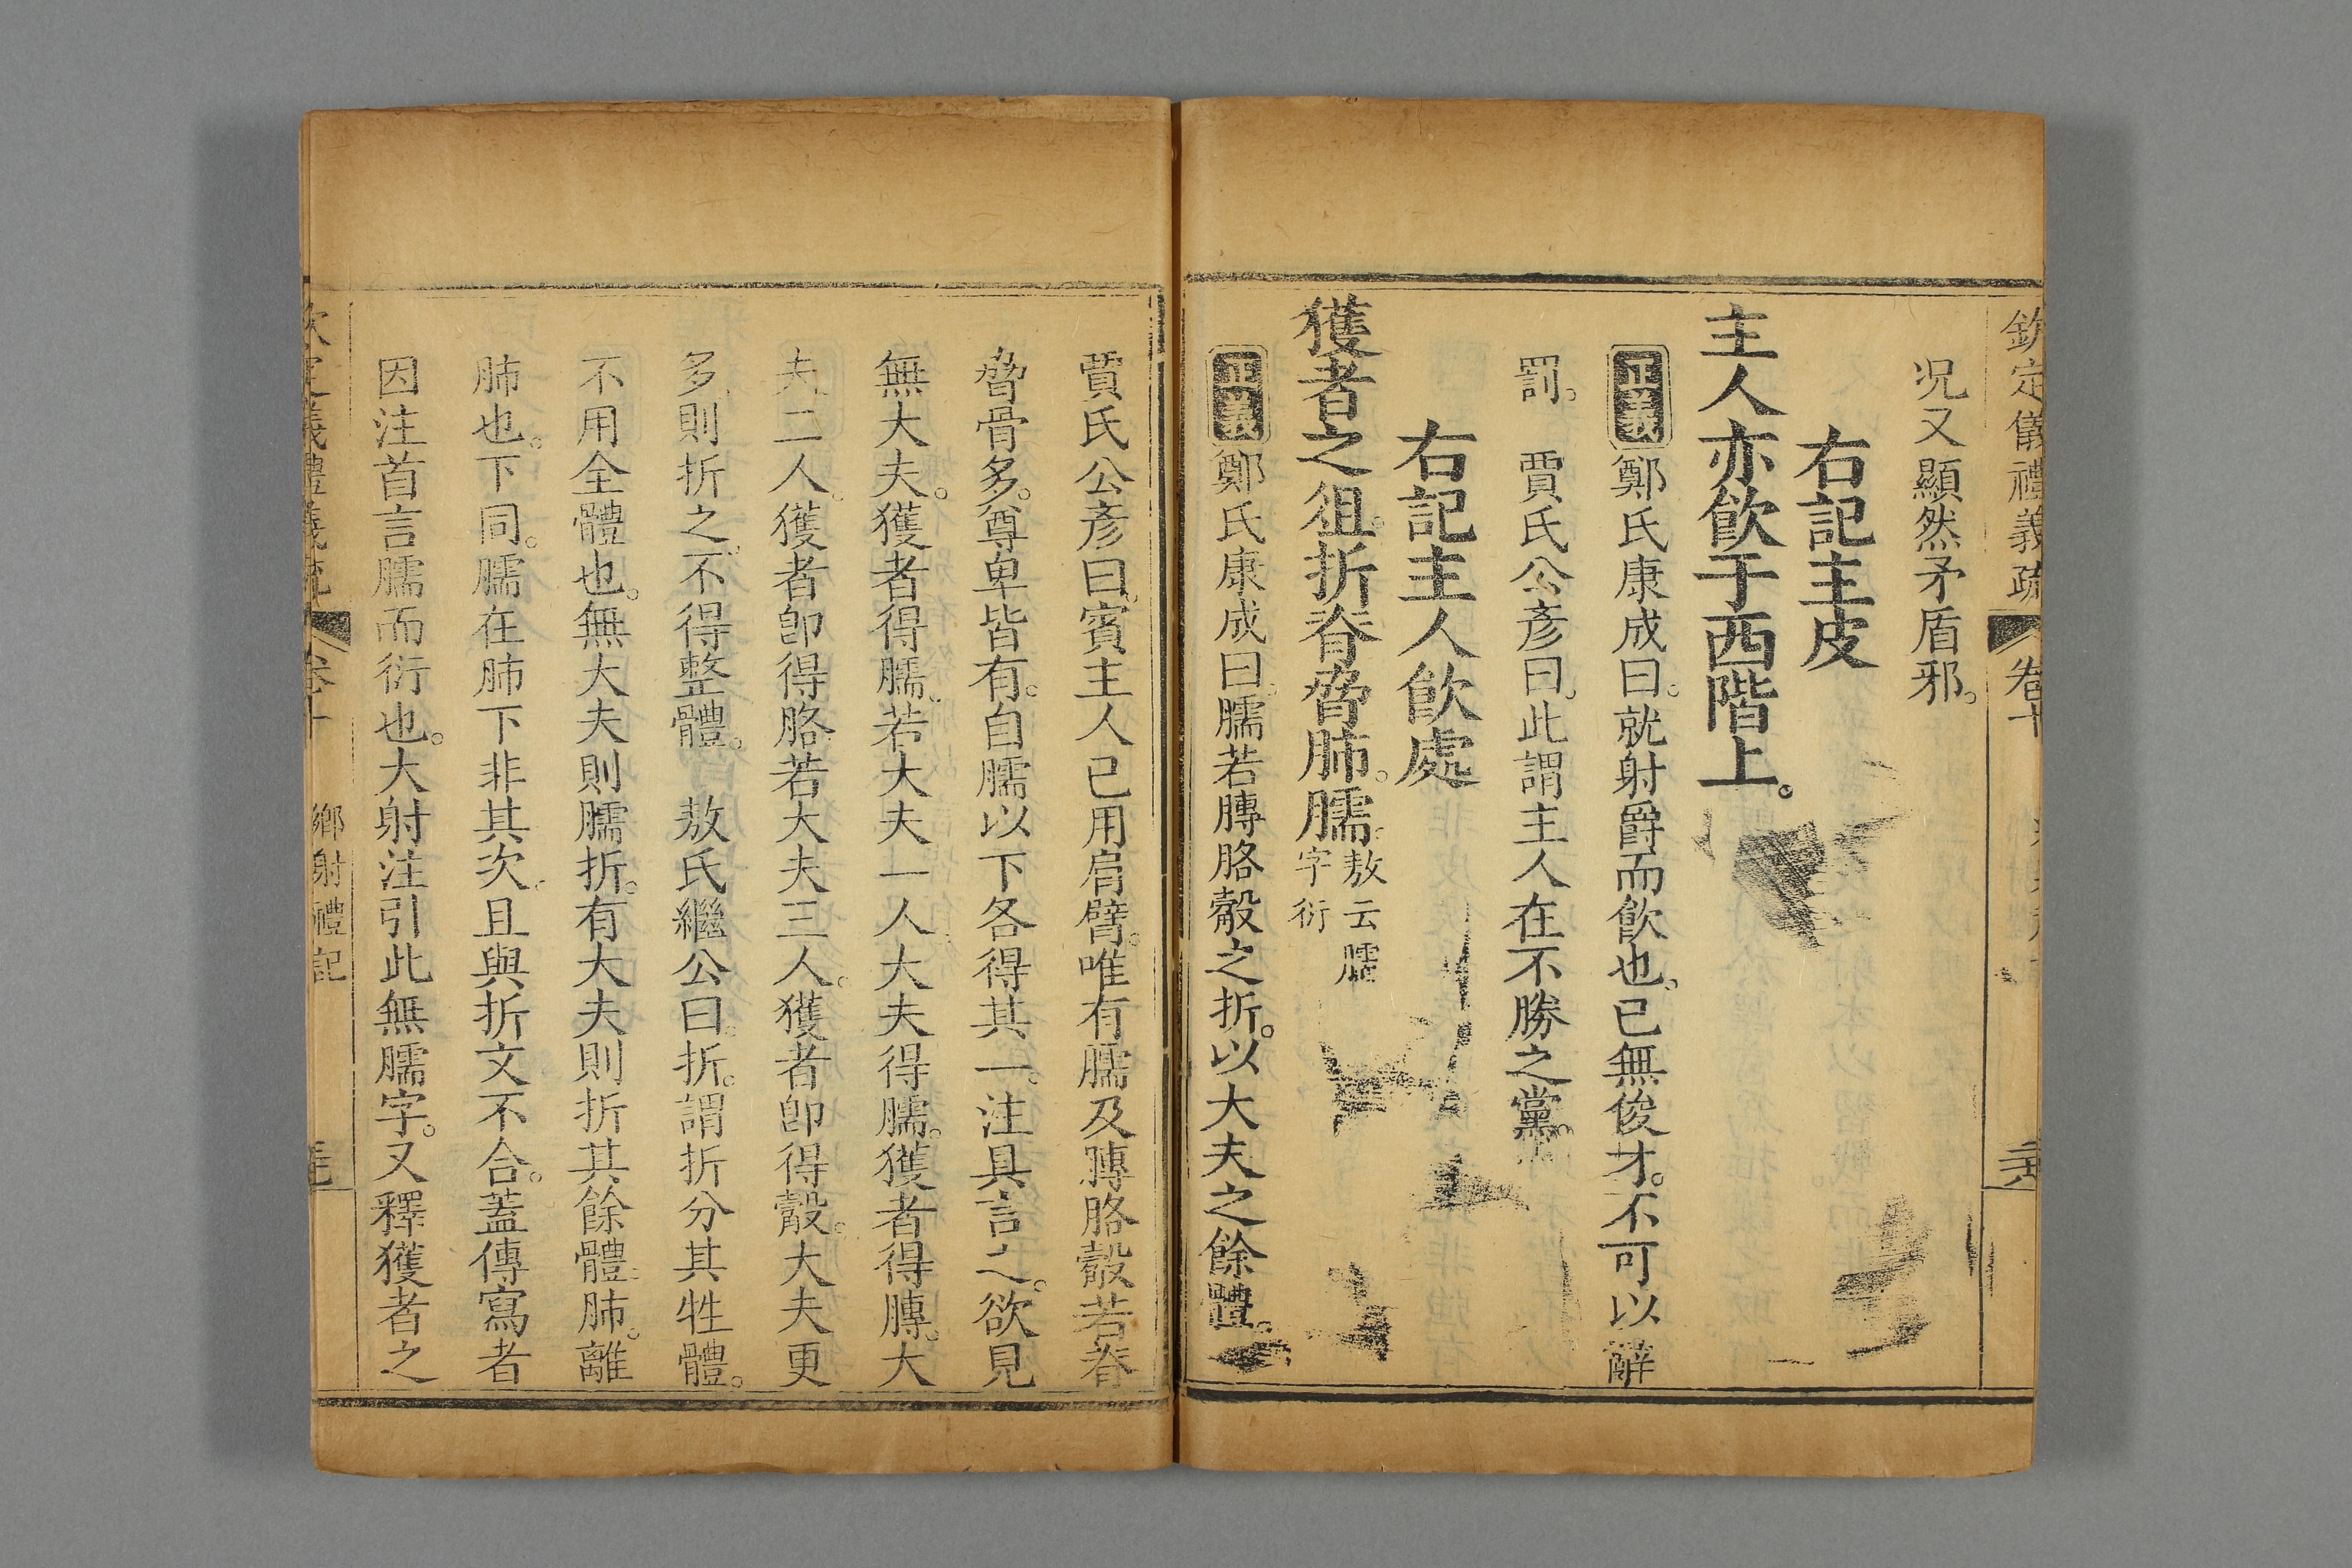 欽定儀禮義疏 卷十
況又顯然矛盾邪。
右記主皮
主人亦飲于西階上。
正義 鄭氏康成曰。就射爵而飲也。已無俊才。不可以辭
罰。 賈氏公彥曰。此謂主人在不勝之黨。
右記主人飲處
獲者之俎。折脊脅肺。臑 敖云臑字衍
正義 鄭氏康成曰。臑若膞胳觳之折。以大夫之餘體。
賈氏公彥曰。賓主人已用肩臂。唯有臑及膞胳觳若脊
脅骨多。尊卑皆有。自臑以下各得其一。注具言之。欲見
無大夫。獲者得臑。若大夫一人。大夫得臑。獲者得膞。大
夫二人。獲者卽得胳。若大夫三人。獲者卽得觳。大夫更
多則折之。不得整體。 敖氏繼公曰。折。謂折分其牲體。
不用全體也。無大夫則臑折。有大夫則折其餘體。肺。離
肺也。下同。臑在肺下非其次。且與折文不合。蓋傳寫者
因注首言臑而衍也。大射注引此無臑字。又釋獲者之
欽定儀禮義疏 卷十 鄉射禮記